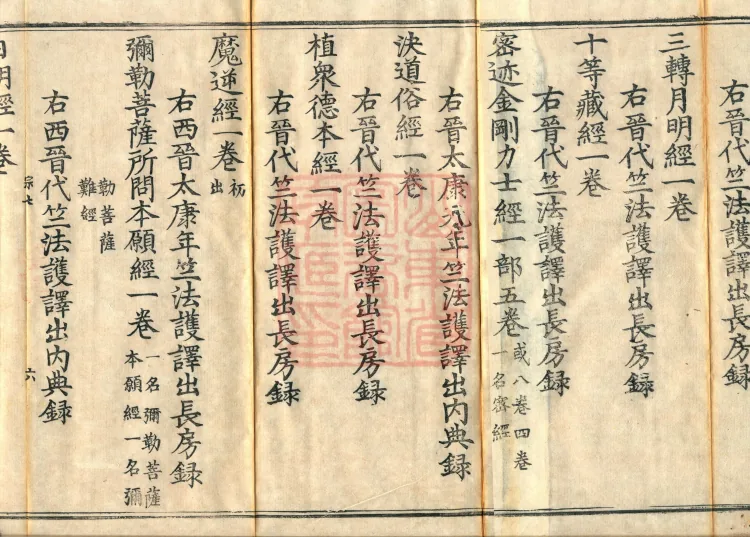 右晉代竺法護譯出長房録
三轉月明經一卷
右晉代竺法護譯出長房録
十等藏經一卷
右晉代竺法護譯出長房録
密迹金剛力士經一部五卷
或八卷四卷
一名密經
右晉太康九年竺法護譯出内典録
決道俗經一卷
右晉代竺法護譯出長房録
植衆德本經一卷
右晉代竺法護譯出長房録
魔逆經一卷
初
出
右西晉太康年竺法護譯出長房録
彌勒菩薩所問本願經一卷
一名彌勒菩薩
本願經一名彌
勒菩薩
難經
右西晉代竺法護譯出内典録
宗七 六
明經一卷